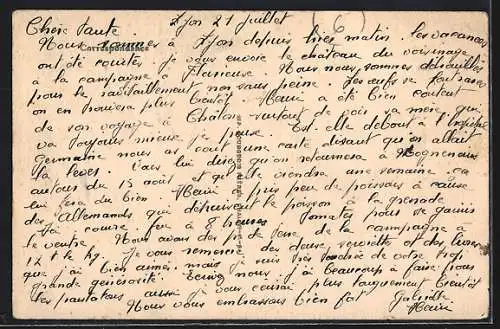 Chère Tante. Lyon 21 juillet
Correspondance
Nous sommes à Lyon depuis hier matin. Les vacances
ont été courtes je vous envoie le château du voisinage
à la campagne à Nous nous sommes débrouillés
pour le ravitaillement non sans peine. Les œufs se font rares
on en trouvera plus bientôt. Henri a été bien content
de son voyage à Chalon surtout de voir sa mère qui
va toujours mieux je pense. Est-elle debout à l'hôpital
Germaine nous avait une carte disant qu'on allait
la lever. Vous lui direz qu'on retournera à
autour du 15 août et qu'elle viendra une semaine ça
lui fera du bien. Henri a pris peu de poissons à cause
des Allemands qui détruisent le poisson à la grenade
J'ai couru fin à 8 heures tomates pour se garnir
le ventre. Nous avons des de terre de la campagne à
12 f le kg. Je vous remercie des deux serviettes et des livres
que j'ai bien aimés mais je suis très de votre trop
grande générosité. Ecrivez nous. j'ai beaucoup à faire, tous
les pantalons aussi je vous causerai plus longuement bientôt
Nous vous embrassons bien fort
Henri